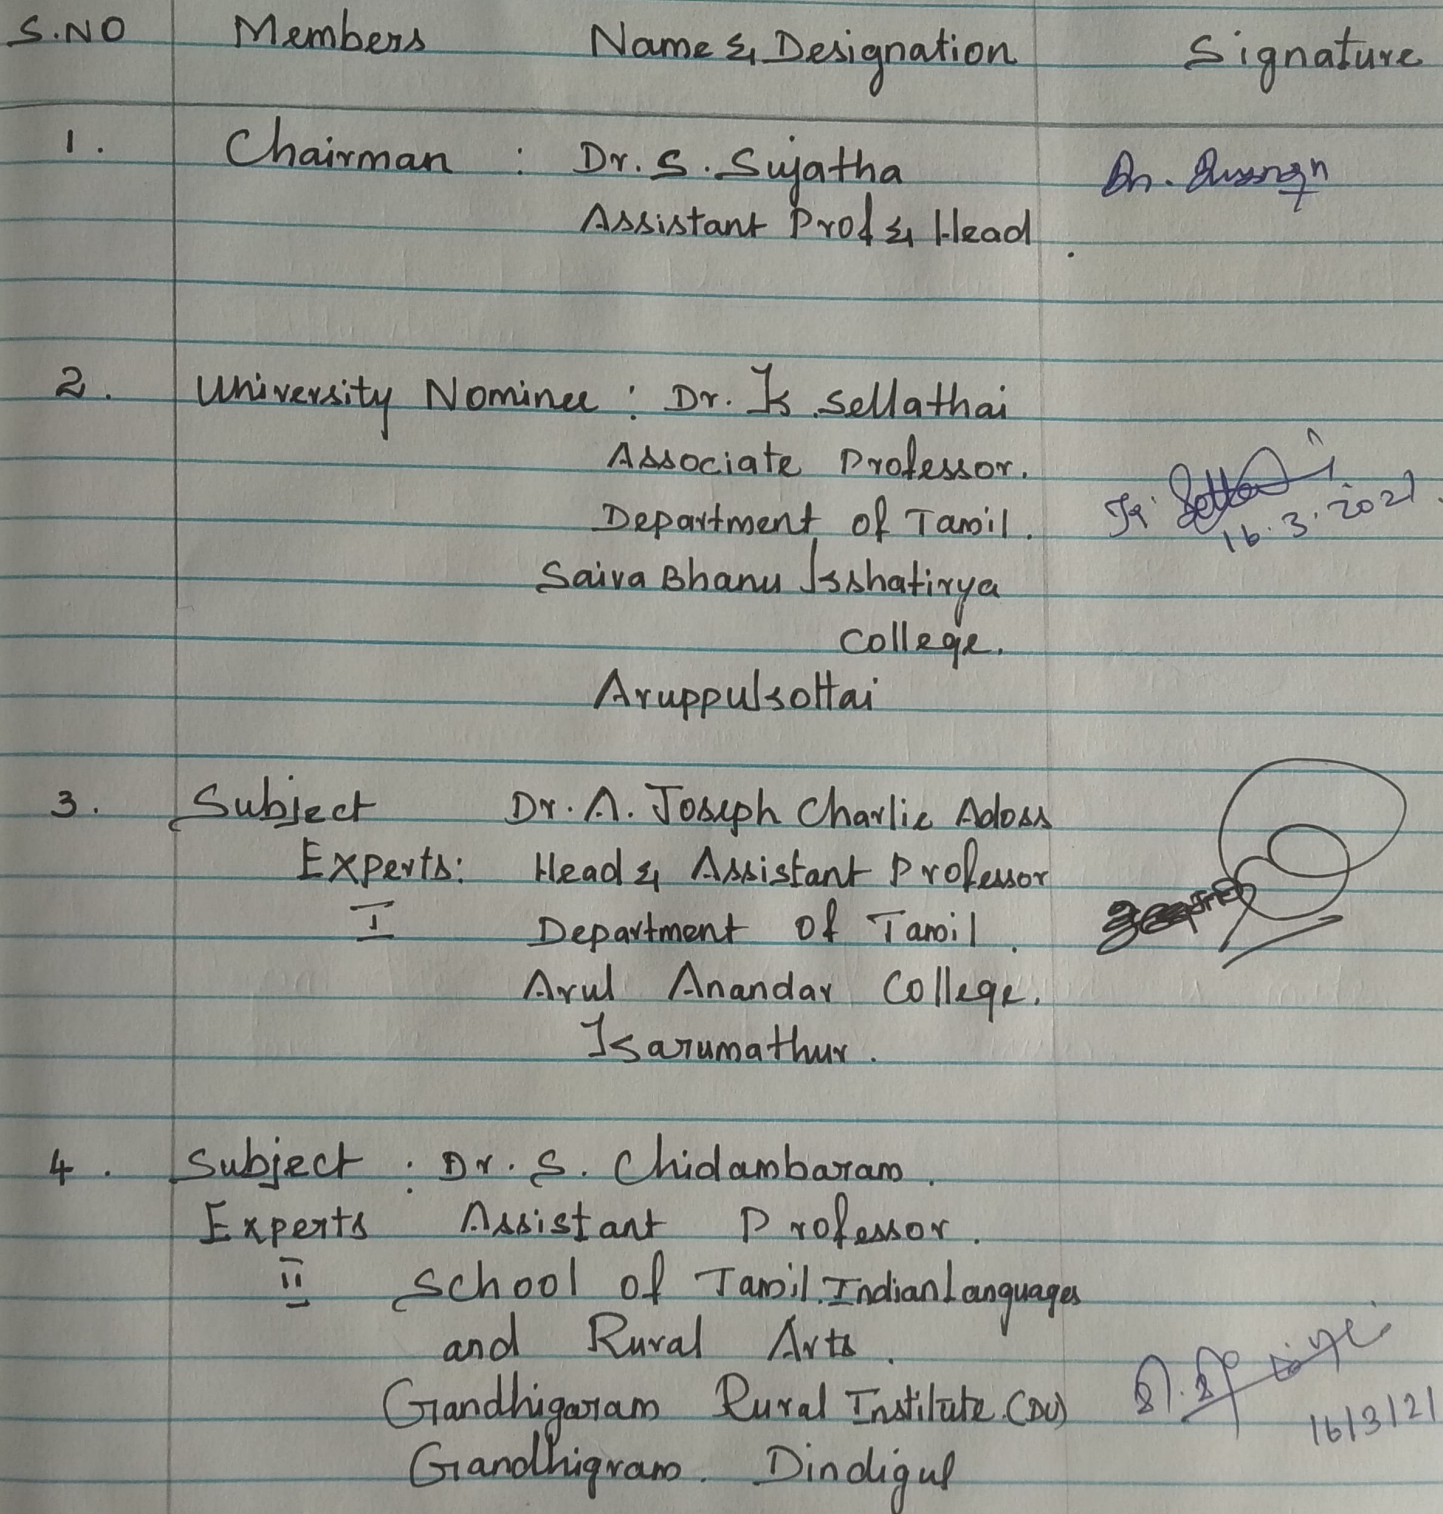 S.NO Members Name & Designation Signature
1. Chairman : Dr. S. Sujatha
Assistant Prof & Head
2. University Nominee : Dr. K. Sellathai
Associate Professor.
Department of Tamil.
16.3.2021
Saiva Bhanu Kshatirya
College.
Aruppukottai
3. Subject Dr. A. Joseph Charlie Adoss
Experts: Head & Assistant Professor
I Department of Tamil.
Arul Anandar College.
Karumathur.
4. Subject : Dr. S. Chidambaram.
Experts Assistant Professor.
II School of Tamil. Indian Languages
and Rural Arts.
Gandhigaram Rural Institute (DU)
16/3/21
Gandhigram. Dindigul